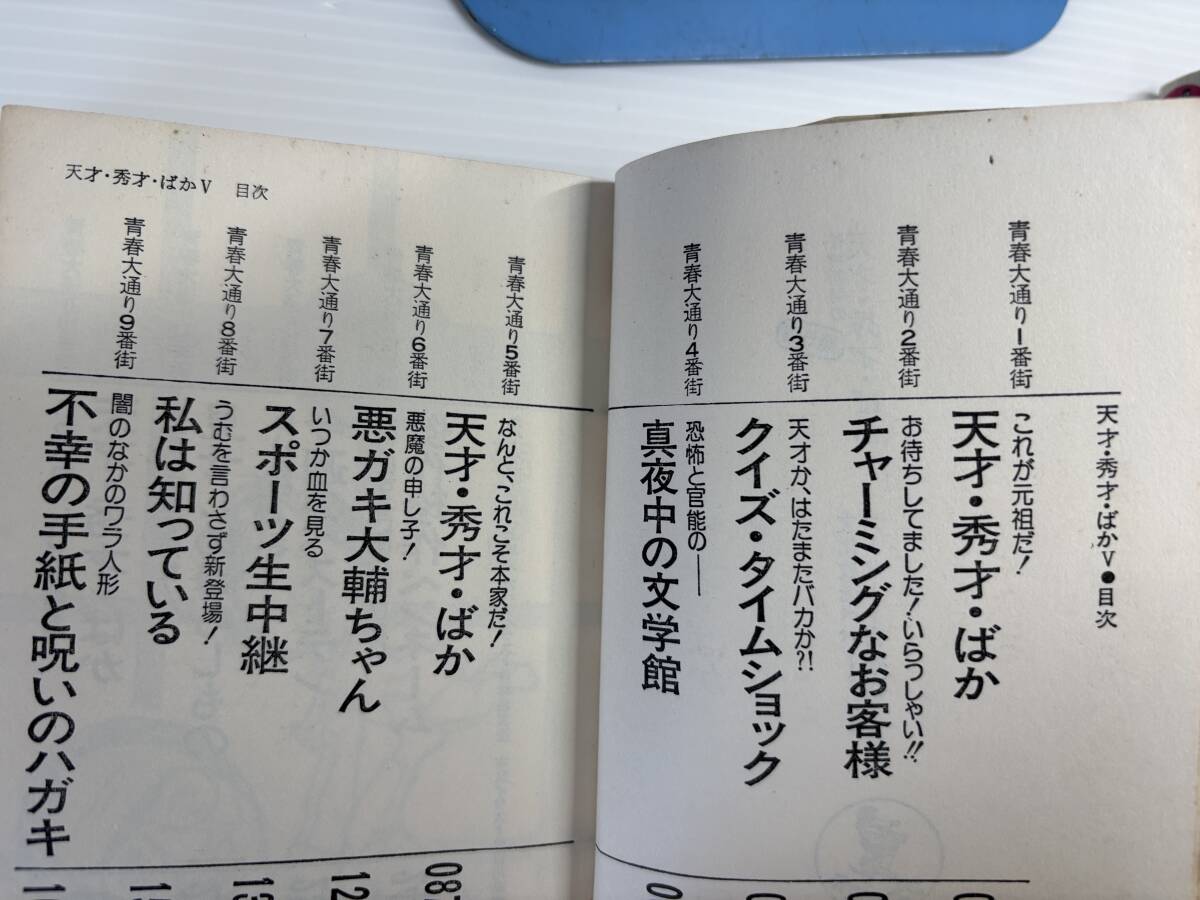 天才・秀才・ばかⅤ●目次
青春大通り1番街
これが元祖だ!
天才・秀才・ばか
青春大通り2番街
お待ちしてました!・いらっしゃい!!
チャーミングなお客様
青春大通り3番街
天才か、はたまたバカか?!
クイズ・タイムショック
青春大通り4番街
恐怖と官能の——
真夜中の文学館
天才・秀才・ばかⅤ 目次
青春大通り5番街
なんと、これこそ本家だ!
天才・秀才・ばか
青春大通り6番街
悪魔の申し子!
悪ガキ大輔ちゃん
青春大通り7番街
いつか血を見る
スポーツ生中継
青春大通り8番街
うむを言わさず新登場!
私は知っている
青春大通り9番街
闇のなかのワラ人形
不幸の手紙と呪いのハガキ